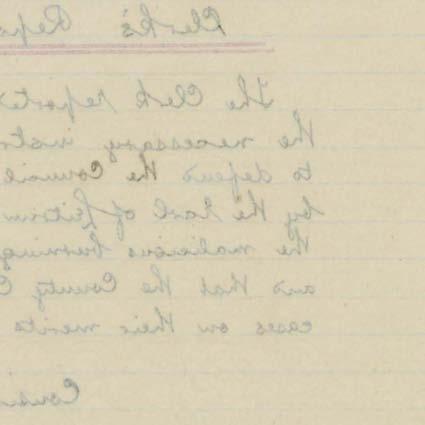 Clerk's Repo
The Clerk reporte
the necessary instr
to defend the Council
by the Earl of
the malicious burning
and that the County C
cases on their merits
Consi